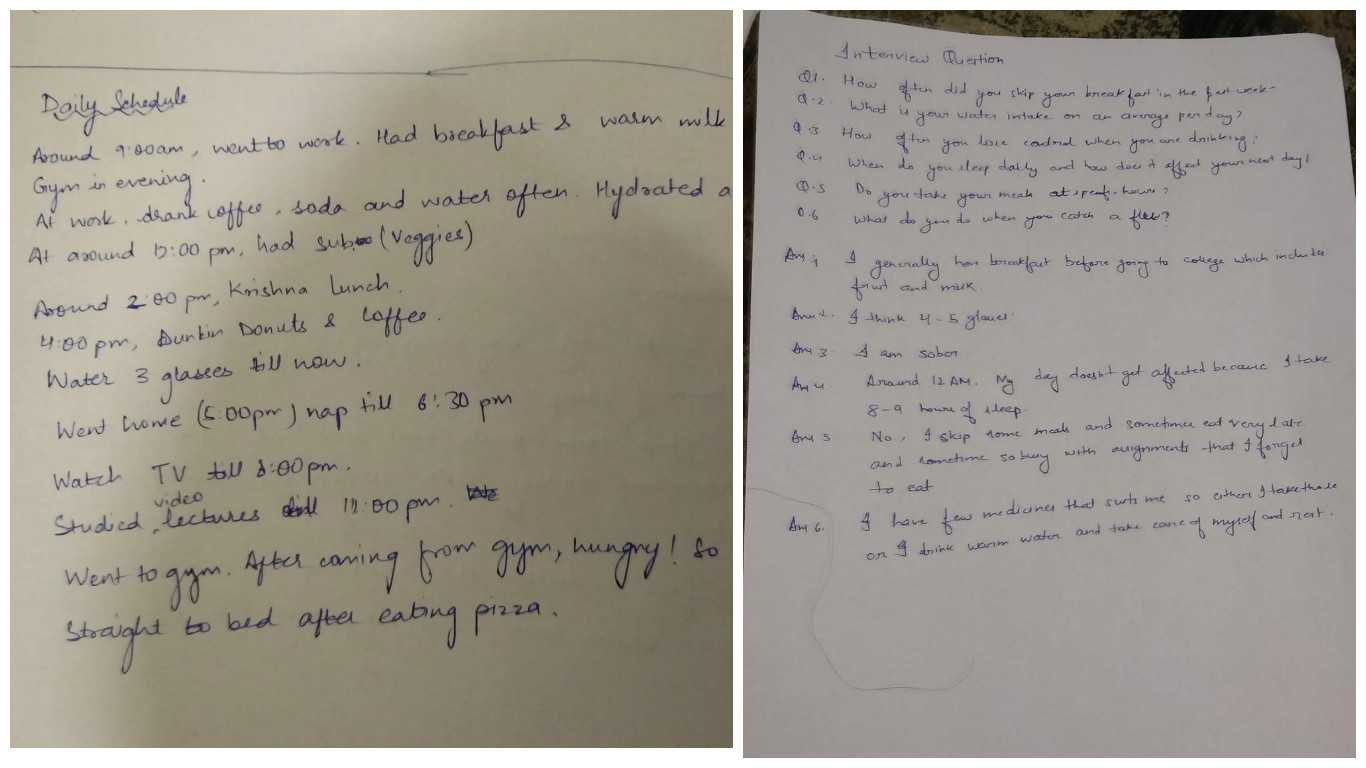 Daily Schedule
Around 9:00am, went to work. Had breakfast & warm milk
Gym in evening.
At work, drank coffee, soda and water often. Hydrated a
At around 12:00 pm, had sub (Veggies)
Around 2:00 pm, Krishna Lunch.
4:00 pm, Dunkin Donuts & Coffee.
Water 3 glasses till now.
Went home (5:00pm) nap till 6:30 pm
Watch TV till 8:00pm.
Studied video lectures till 11:00 pm.
Went to gym. After coming from gym, hungry! So
Straight to bed after eating pizza.
Interview Question
Q1. How often did you skip your breakfast in the past week-
Q.2. What is your water intake on an average per day?
Q.3 How often you lose control when you are drinking?
Q.4 When do you sleep daily and how does it affect your next day?
Q.5 Do you take your meals at specific hours?
Q.6 What do you do when you catch a flu?
Ans 1 I generally have breakfast before going to college which includes
fruit and milk.
Ans 2. I think 4-5 glasses.
Ans 3. I am sober
Ans 4. Around 12 AM. My day doesn't get affected because I take
8-9 hours of sleep.
Ans 5. No, I skip some meals and sometimes eat very late
and sometime so busy with assignments that I forget
to eat
Ans 6. I have few medicines that suits me so either I take those
or I drink warm water and take care of myself and rest.